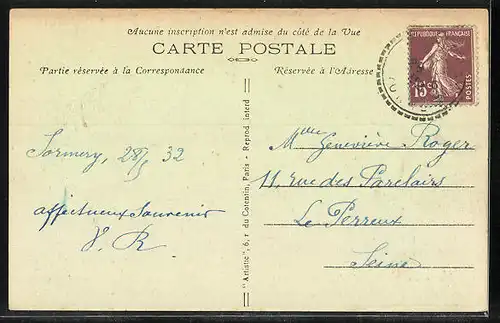 Aucune inscription n'est admise du côté de la Vue
CARTE POSTALE
Partie réservée à la Correspondance
Réservée à l'Adresse
RÉPUBLIQUE FRANÇAISE
15 c
POSTES
Sormery, 28/ 32
affectueux Souvenir
V. R
"Artistic", 6, r. du Cotentin, Paris - Reprod. interd
Melle Geneviève Roger
11, rue des Parclairs
Le Perreux
Seine